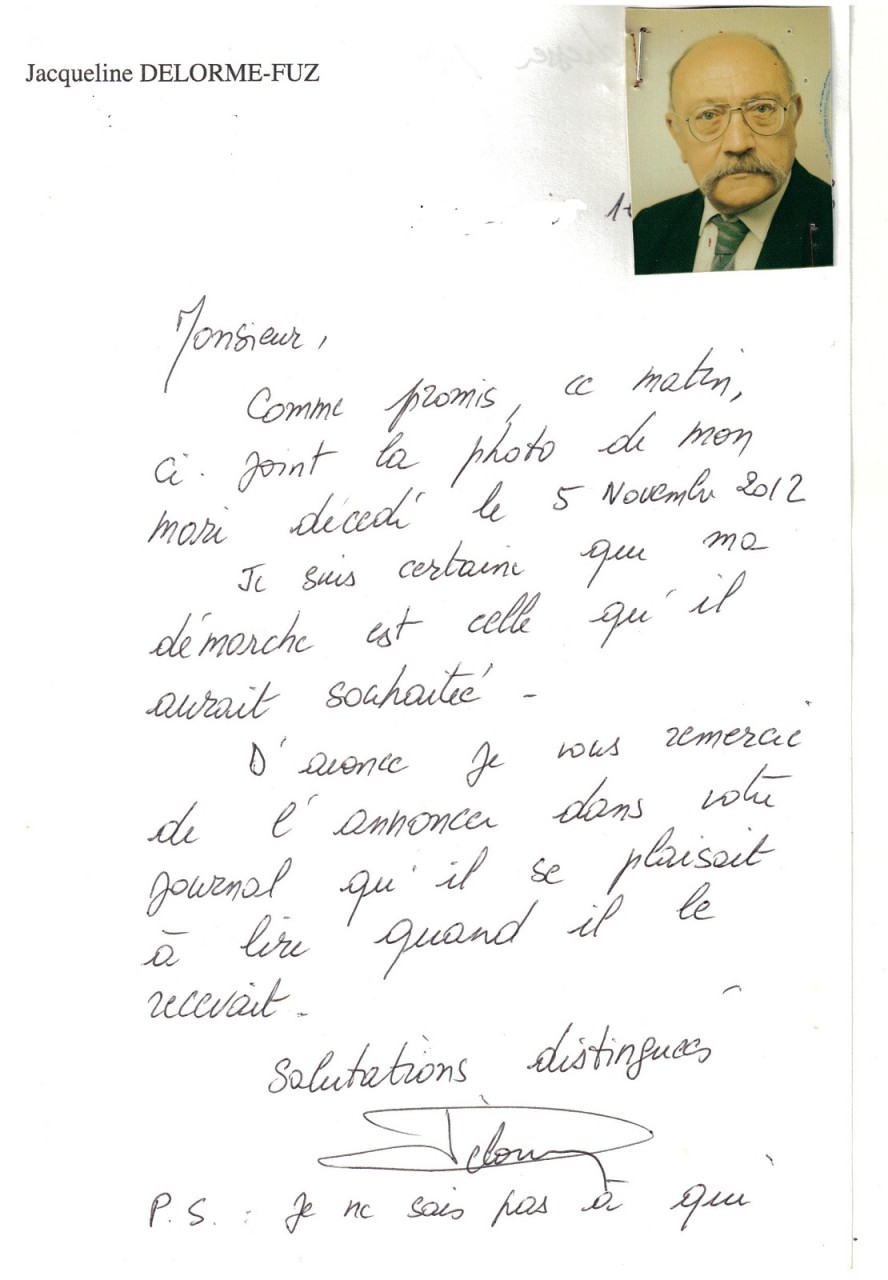 Jacqueline DELORME-FUZ
Monsieur,
Comme promis, ce matin,
ci. joint la photo de mon
mari décedé le 5 Novembre 2012
Je suis certaine que ma
démarche est celle qu'il
aurait souhaitéé -
D'avance je vous remercie
de l'annoncer dans votre
journal qu'il se plaisait
à lire quand il le
recevait -
Salutations distinguées
P. S. : Je ne sais pas à qui